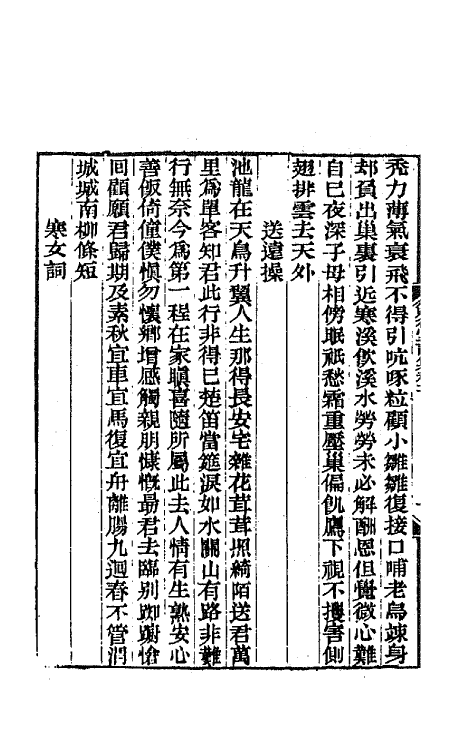 禿力薄氣衰飛不得引吭啄粒顧小雛雛復接口哺老烏竦身
却負出巢裏引近寒溪飲溪水勞勞未必解酬恩但覺微心難
自已夜深子母相傍眠祇愁霜重壓巢偏飢鷹下視不攫害側
翅排雲去天外
送遠操
池龍在天鳥升翼人生那得長安宅雜花茸茸照綺陌送君萬
里為單客知君此行非得已楚笛當筵淚如水關山有路非難
行無奈今為第一程在家嗔喜隨所屬此去人情有生熟安心
善飯倚僮僕慎勿懷鄉增感觸親朋慷慨勗君去臨別踟躕愴
回顧願君歸期及素秋宜車宜馬復宜舟離腸九迴春不管潤
城城南柳條短
寒女詞